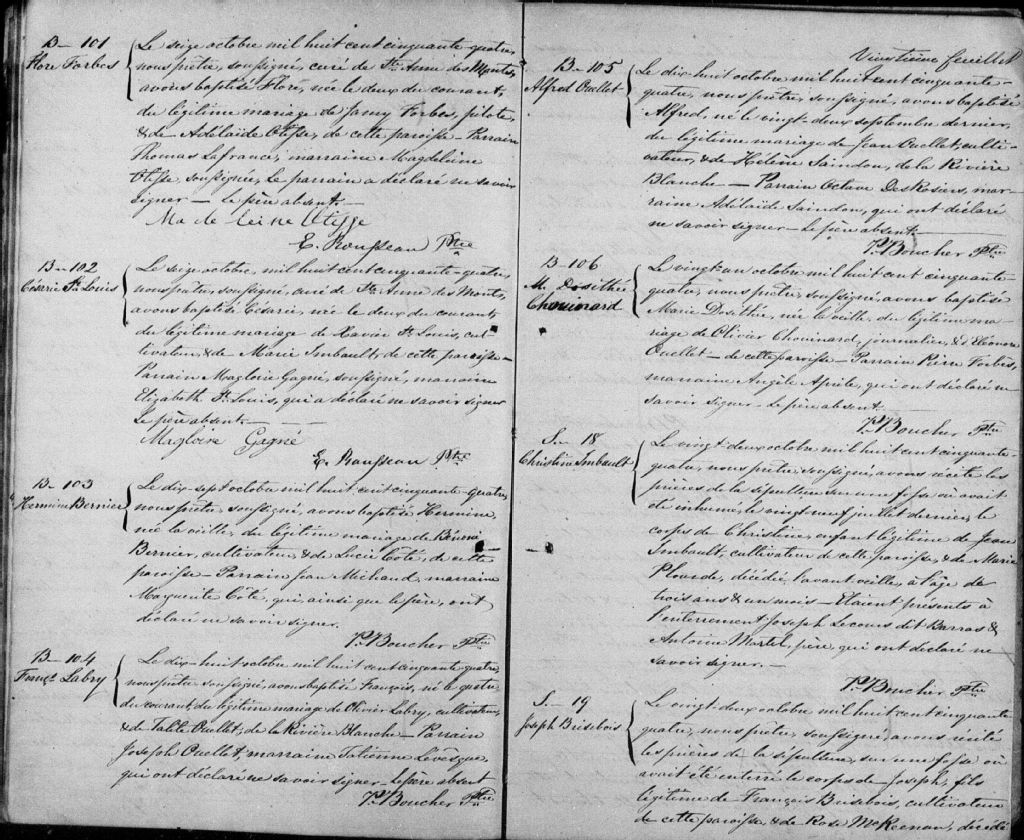 B — 101
Flore Forbes
Le seize octobre mil huit cent cinquante-quatre,
nous prêtre, soussigné, curé de Ste Anne des Monts,
avons baptisé Flore, née le deux du courant,
du légitime mariage de Jamy Forbes, pilote,
& de Adélaïde Otisse, de cette paroisse — Parrain
Thomas Lafrance, marraine Magdeleine
Otisse, soussignée, le parrain a déclaré ne savoir
signer — le père absent. —
Ma de lei ne Utisse
E. Rousseau Ptre
B — 102
Césarie St Louis
Le seize octobre, mil huit cent cinquante-quatre,
nous prêtre, soussigné, curé de Ste Anne des Monts,
avons baptisé Césarie, née le deux du courant,
du légitime mariage de Xavier St Louis, cul-
tivateur, & de Marie Imbault, de cette paroisse —
Parrain Magloire Gagné, soussigné, marraine
Elizabeth St Louis, qui a déclaré ne savoir signer
Le père absent. —
Magloire Gagné
E. Rousseau Ptre
B — 103
Hermine Bernier
Le dix-sept octobre mil huit cent cinquante-quatre,
nous prêtre, soussigné, avons baptisé Hermine,
née la veille, du légitime mariage de
Bernier, cultivateur, & de Lucie Coté, de cette
paroisse — Parrain Jean Michaud, marraine
Marguerite Côté, qui, ainsi que le père, ont
déclaré ne savoir signer.
P. Boucher Ptre
B — 104
Françs Labry
Le dix-huit octobre mil huit cent cinquante quatre,
nous prêtre soussigné, avons baptisé François, né le quatre
du courant, du légitime mariage de Olivier Labry, cultivateur,
& de Ouellet, de la Rivière Blanche — Parrain
Joseph Ouellet, marraine Tatienne Lévesque,
qui ont déclaré ne savoir signer — le père absent
P. Boucher Ptre
Vingtième feuillet
B — 105
Alfred Ouellet
Le dix-huit octobre mil huit cent cinquante-
quatre, nous prêtre, soussigné, avons baptisé
Alfred, né le vingt-deux septembre dernier,
du légitime mariage de Jean Ouellet, culti-
vateur, & de Hélène Saindon, de la Rivière
Blanche — Parrain Octave DesRosiers, mar-
raine Adélaïde Saindon, qui ont déclaré
ne savoir signer — le père absent. —
P. Boucher Ptre
B — 106
M. Dosithée
Chouinard
Le vingt-un octobre mil huit cent cinquante-
quatre, nous prêtre, soussigné, avons baptisé
Marie Dosithée, née la veille, du légitime ma-
riage de Olivier Chouinard, journalier, & d'Eléonore
Ouellet — de cette paroisse — Parrain Pierre Forbes,
marraine Angèle Aprile, qui ont déclaré ne
savoir signer — le père absent. —
P. Boucher Ptre
S — 18
Christine Imbault
Le vingt-deux octobre mil huit cent cinquante-
quatre, nous prêtre, soussigné, avons récité les
prières de la sépulture sur une fosse où avait
été inhumé, le vingt neuf juillet dernier, le
corps de Christine, enfant légitime de Jean
Imbault, cultivateur de cette paroisse, & de Marie
Plourde, décédée l'avant veille, à l'âge de
trois ans & un mois — Etaient présents à
l'enterrement Joseph Lecours dit Barras &
Antoine Martel, père, qui ont déclaré ne
savoir signer. —
P. Boucher Ptre
S — 19
Joseph Brisebois
Le vingt-deux octobre mil huit cent cinquante
quatre, nous prêtre, soussigné, avons récité
les prières de la sépulture, sur une fosse où
avait été enterré le corps de Joseph, fils
légitime de François Brisebois, cultivateur
de cette paroisse, & de Rose McKernan, décédé